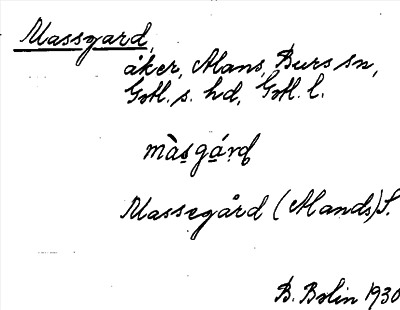 Massgard,
åker, Alans, Burs sn,
Gotl. s. hd, Gotl. l.
màsgárd
Massegård (Alands) S.
B. Bolin 1930